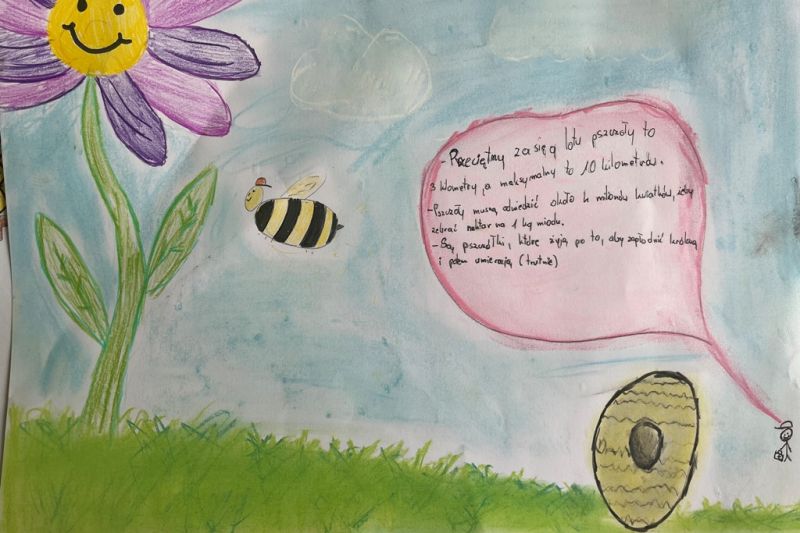 - Przeciętny zasięg lotu pszczoły to
3 kilometry, a maksymalny to 10 kilometrów.
- Pszczoły muszą odwiedzić około 4 milionów kwiatków, żeby
zebrać nektar na 1 kg miodu.
- Są pszczółki, które żyją po to, aby zapłodnić królową
i potem umierają (trutnie)